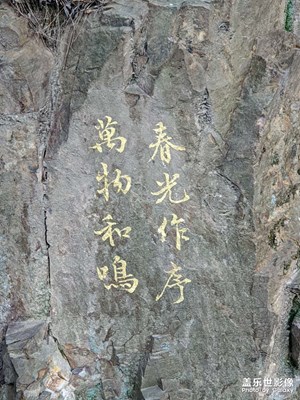 春光作序
萬物和鳴
盖乐世影像
Photo by Galaxy